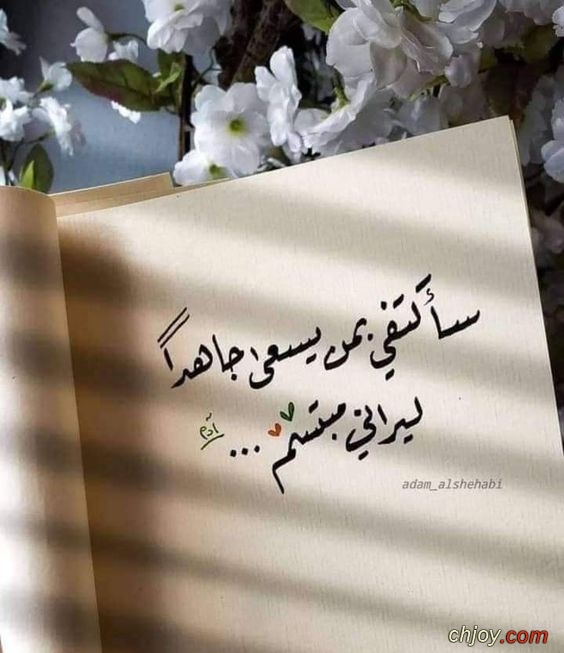 سأكتفي بمن يسعى جاهداً
ليراني مبتسم ...
آدم
adam_alshehabi
chjoy.com